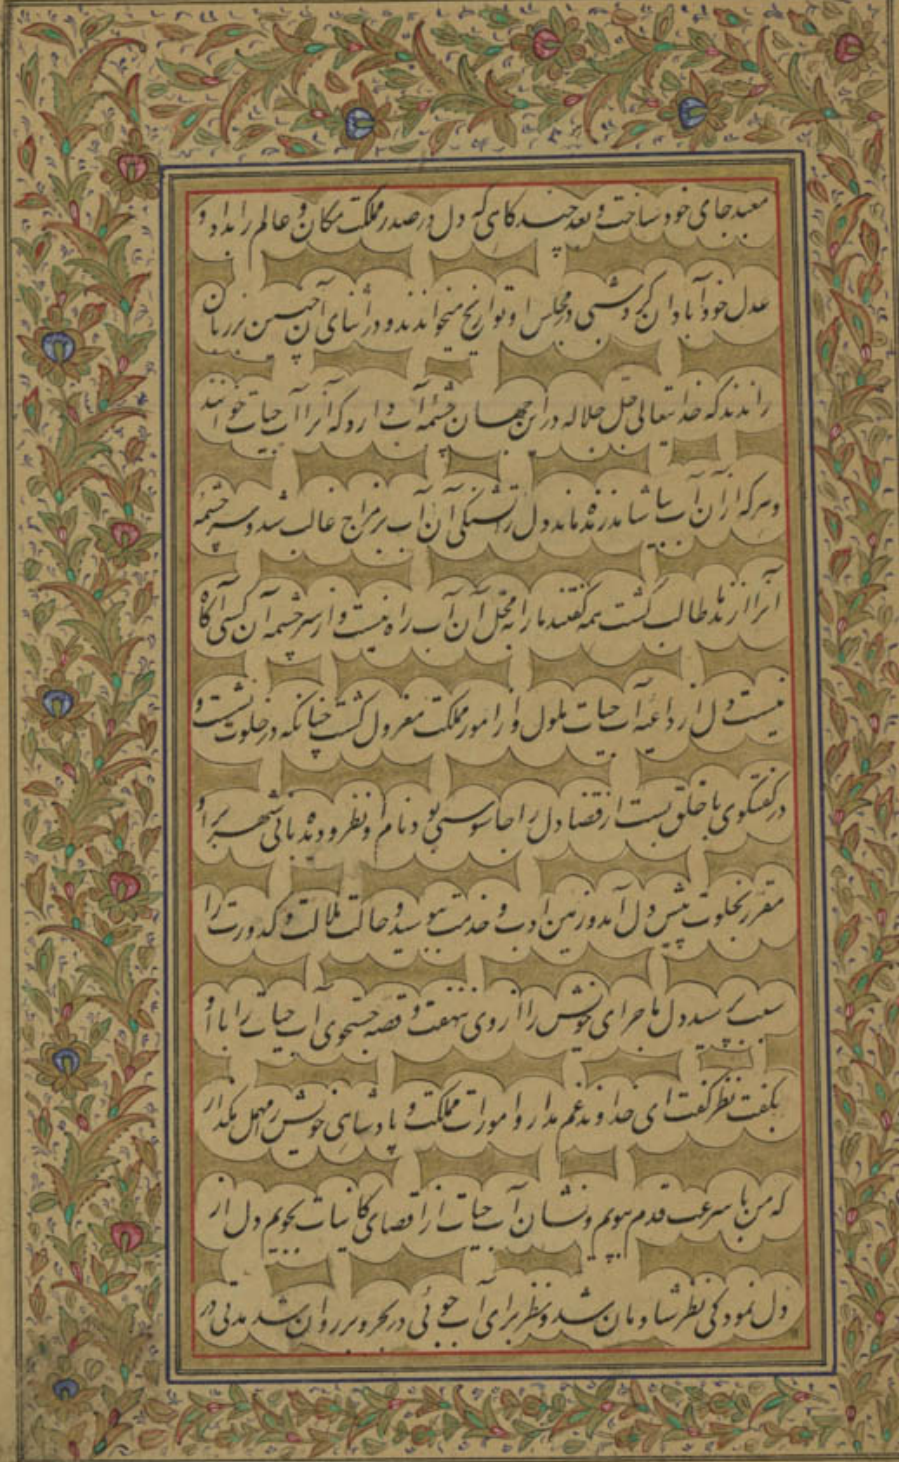 معبد جای خود ساخت و بعد چند گاهی که دل در صدر مملکت مکان و عالم را بداد و
عدل خود آبادان کرد شبی در مجلس او تواریخ میخواندند و در اثنای آن چنین بر زبان
راندند که خدا یتعالی جل جلاله در این جهان چشمهٔ آب دارد که آنرا آب حیات خوانند
و هر که از آن آب بیاشامد زنده ماند دل را تشنگی آن آب بر مزاج غالب شد و سرچشمهٔ
آنرا از ندما طالب گشت همه گفتند ما را به محل آن آب راه نیست و از سرچشمه آن کسی آگاه
نیست دل از داعیهٔ آب حیات ملول و از امور مملکت معزول گشت چنانکه در خلوت نشست و
در گفتگوی با خلق بست از قضا دل را جاسوسی بود نام او نظر و دیده بانی شهر بر او
مقرر بخلوت پیش دل آمد و زمین ادب و خدمت ببوسید و حالت ملالت و کدورت را
سبب پرسید دل ماجرای خویش را از وی ننهفت و قصه جستجوی آب حیات را با او
بگفت نظر گفت ای خداوند غم مدار و امورات مملکت و پادشاهی خویش مهمل مگذار
که من با سرعت قدم بپویم و نشان آب حیات از اقصای کاینات بجویم دل از
دل نمودگی نظر شادمان شد و نظر برای آب جوئی در بحر و بر روان شد مدتی در